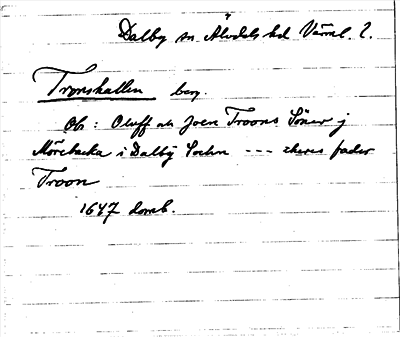 Dalby sn Älvdals hd Värml. 2.
Tronskallen berg.
Ob: Oluff och Joen Troons Söner j
Mörebacka i Dalby Sochn --- theres fader
Troon
1647 domb.